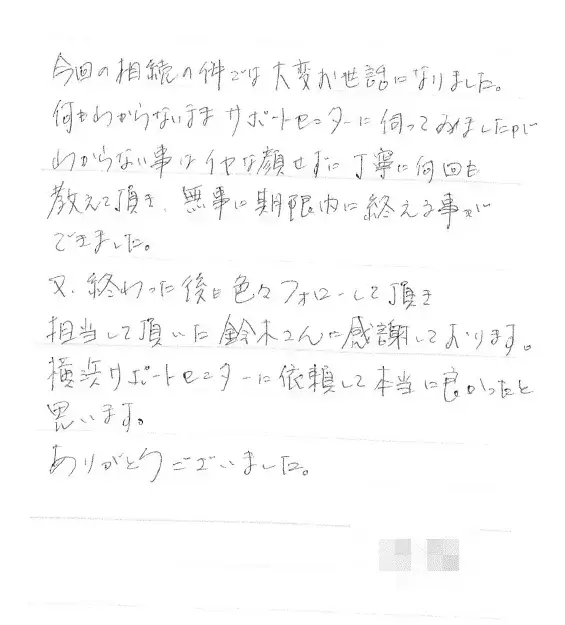 今回の相続の件では大変お世話になりました。
何もわからないままサポートセンターに伺ってみましたが
わからない事はイヤな顔せずに丁寧に何回も
教えて頂き、無事に期限内に終える事が
できました。
又、終わった後も色々フォローして頂き
担当して頂いた鈴木さんに感謝しております。
横浜サポートセンターに依頼して本当に良かったと
思います。
ありがとうございました。